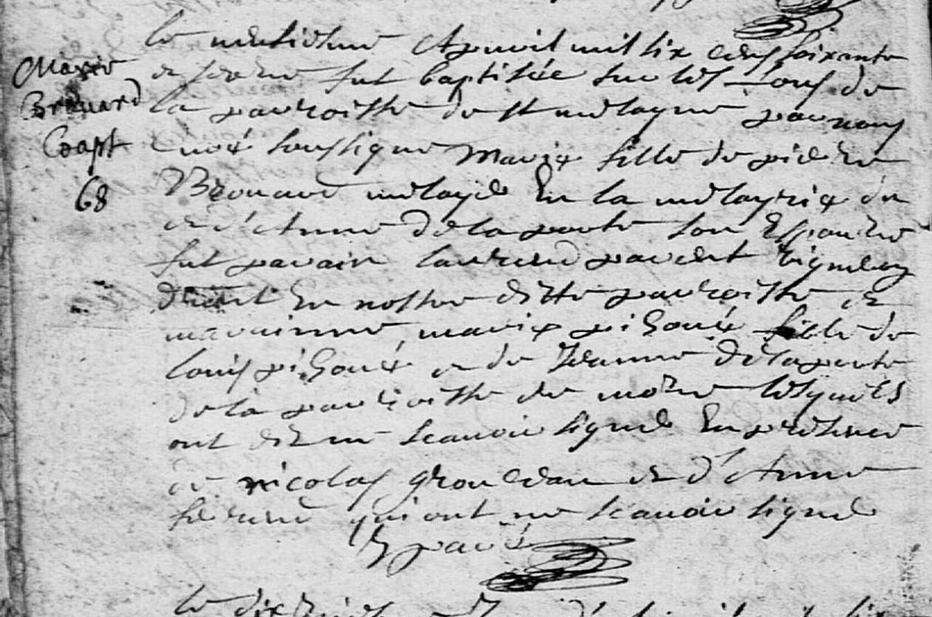 Marie
Brouard
Bapt
68
le neufiesme Apvril mil six cens soixante
et fut baptisée sur les fons de
la parroisse de st melagne par nous
curé soussigné Marie fille de pierre
Brouard metayé En la metayrie du
et d'Anne delaporte son Espouse
fut parain laurend vigneron
En nostre ditte parroisse et
marainne marie pihoué fille de
louis pihoué et de Jeanne delaporte
de la parroisse de lesquels
ont dit ne scavoir signé En presence
de nicolas groudeau et d'Anne
qui ont ne scavoir signé
le dix